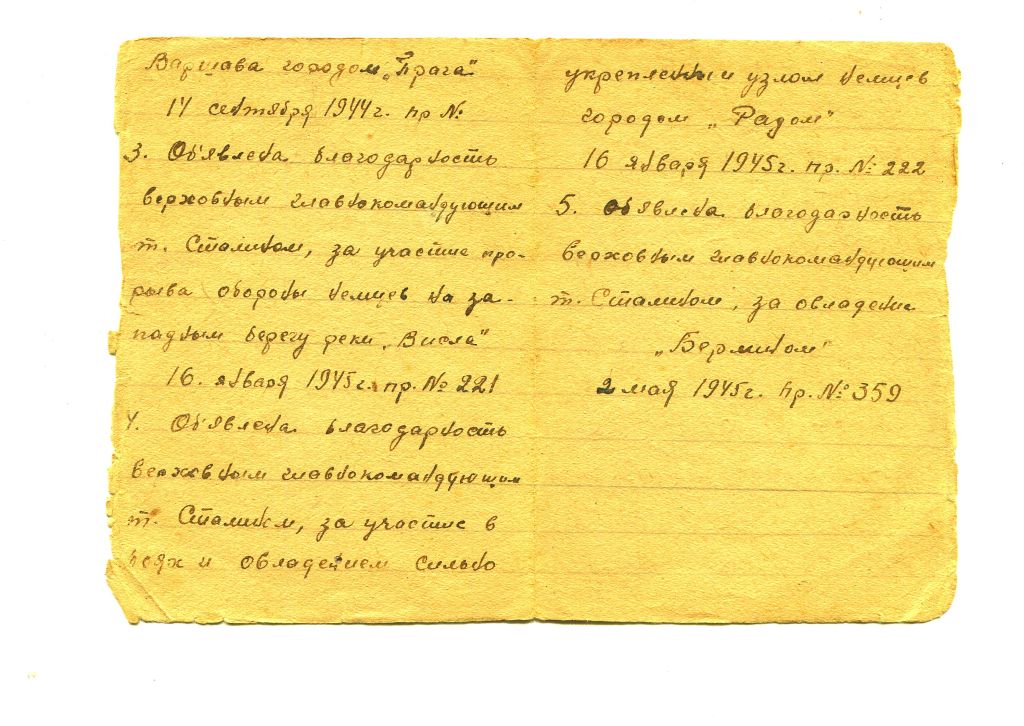 Варшава городом „Прага"
14 сентября 1944 г. пр №
3. Объявлена благодарность
верховным главнокомандующим
т. Сталином, за участие про-
рыва обороны немцев на за-
падным берегу реки „Висла"
16. января 1945 г. пр. № 221
4. Объявлена благодарность
верховным главнокомандующим
т. Сталином, за участие в
боях и овладением сильно
укрепленным узлом немцев
городом „Радом"
16 января 1945 г. пр. № 222
5. Объявлена благодарность
верховным главнокомандующим
т. Сталином, за овладение
„Берлином"
2 мая 1945 г. пр. № 359